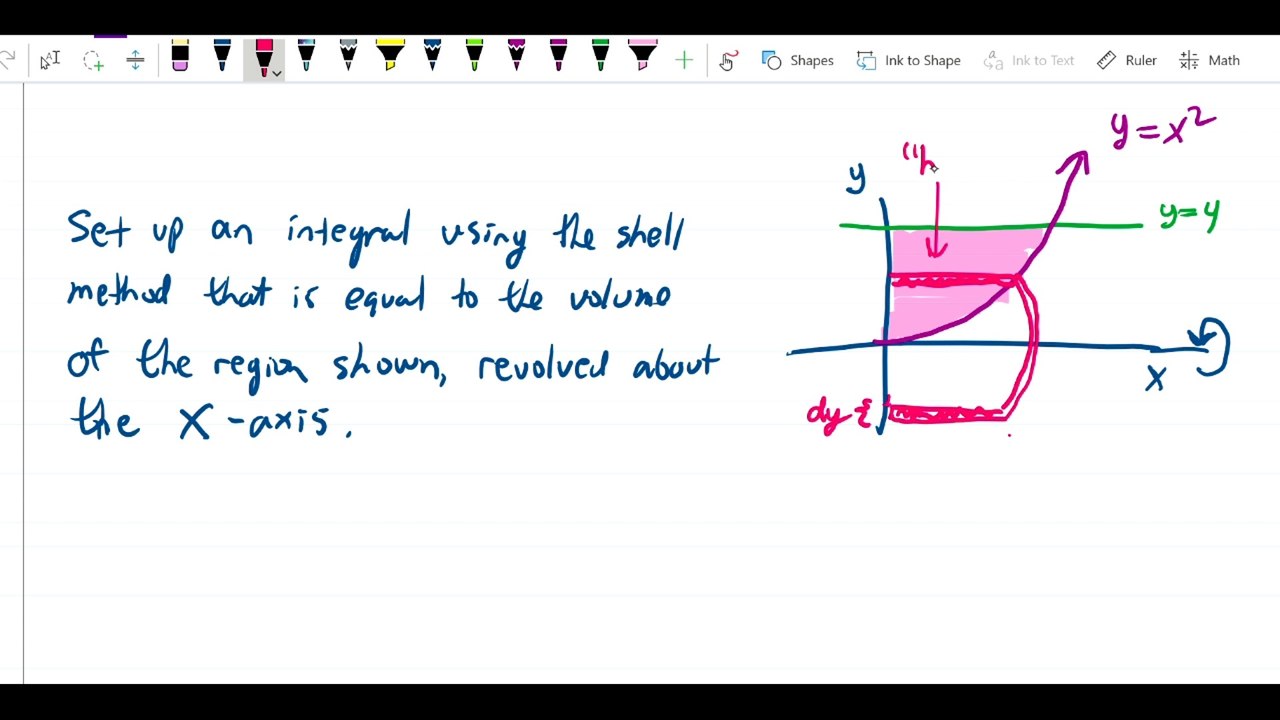 Ink to Shape
Shapes
Ink to Text
Ruler
Math
Set up an integral using the shell
method that is equal to the volume
of the region shown, revolved about
the x-axis.
y = x²
y
"h
y=4
x
dy {